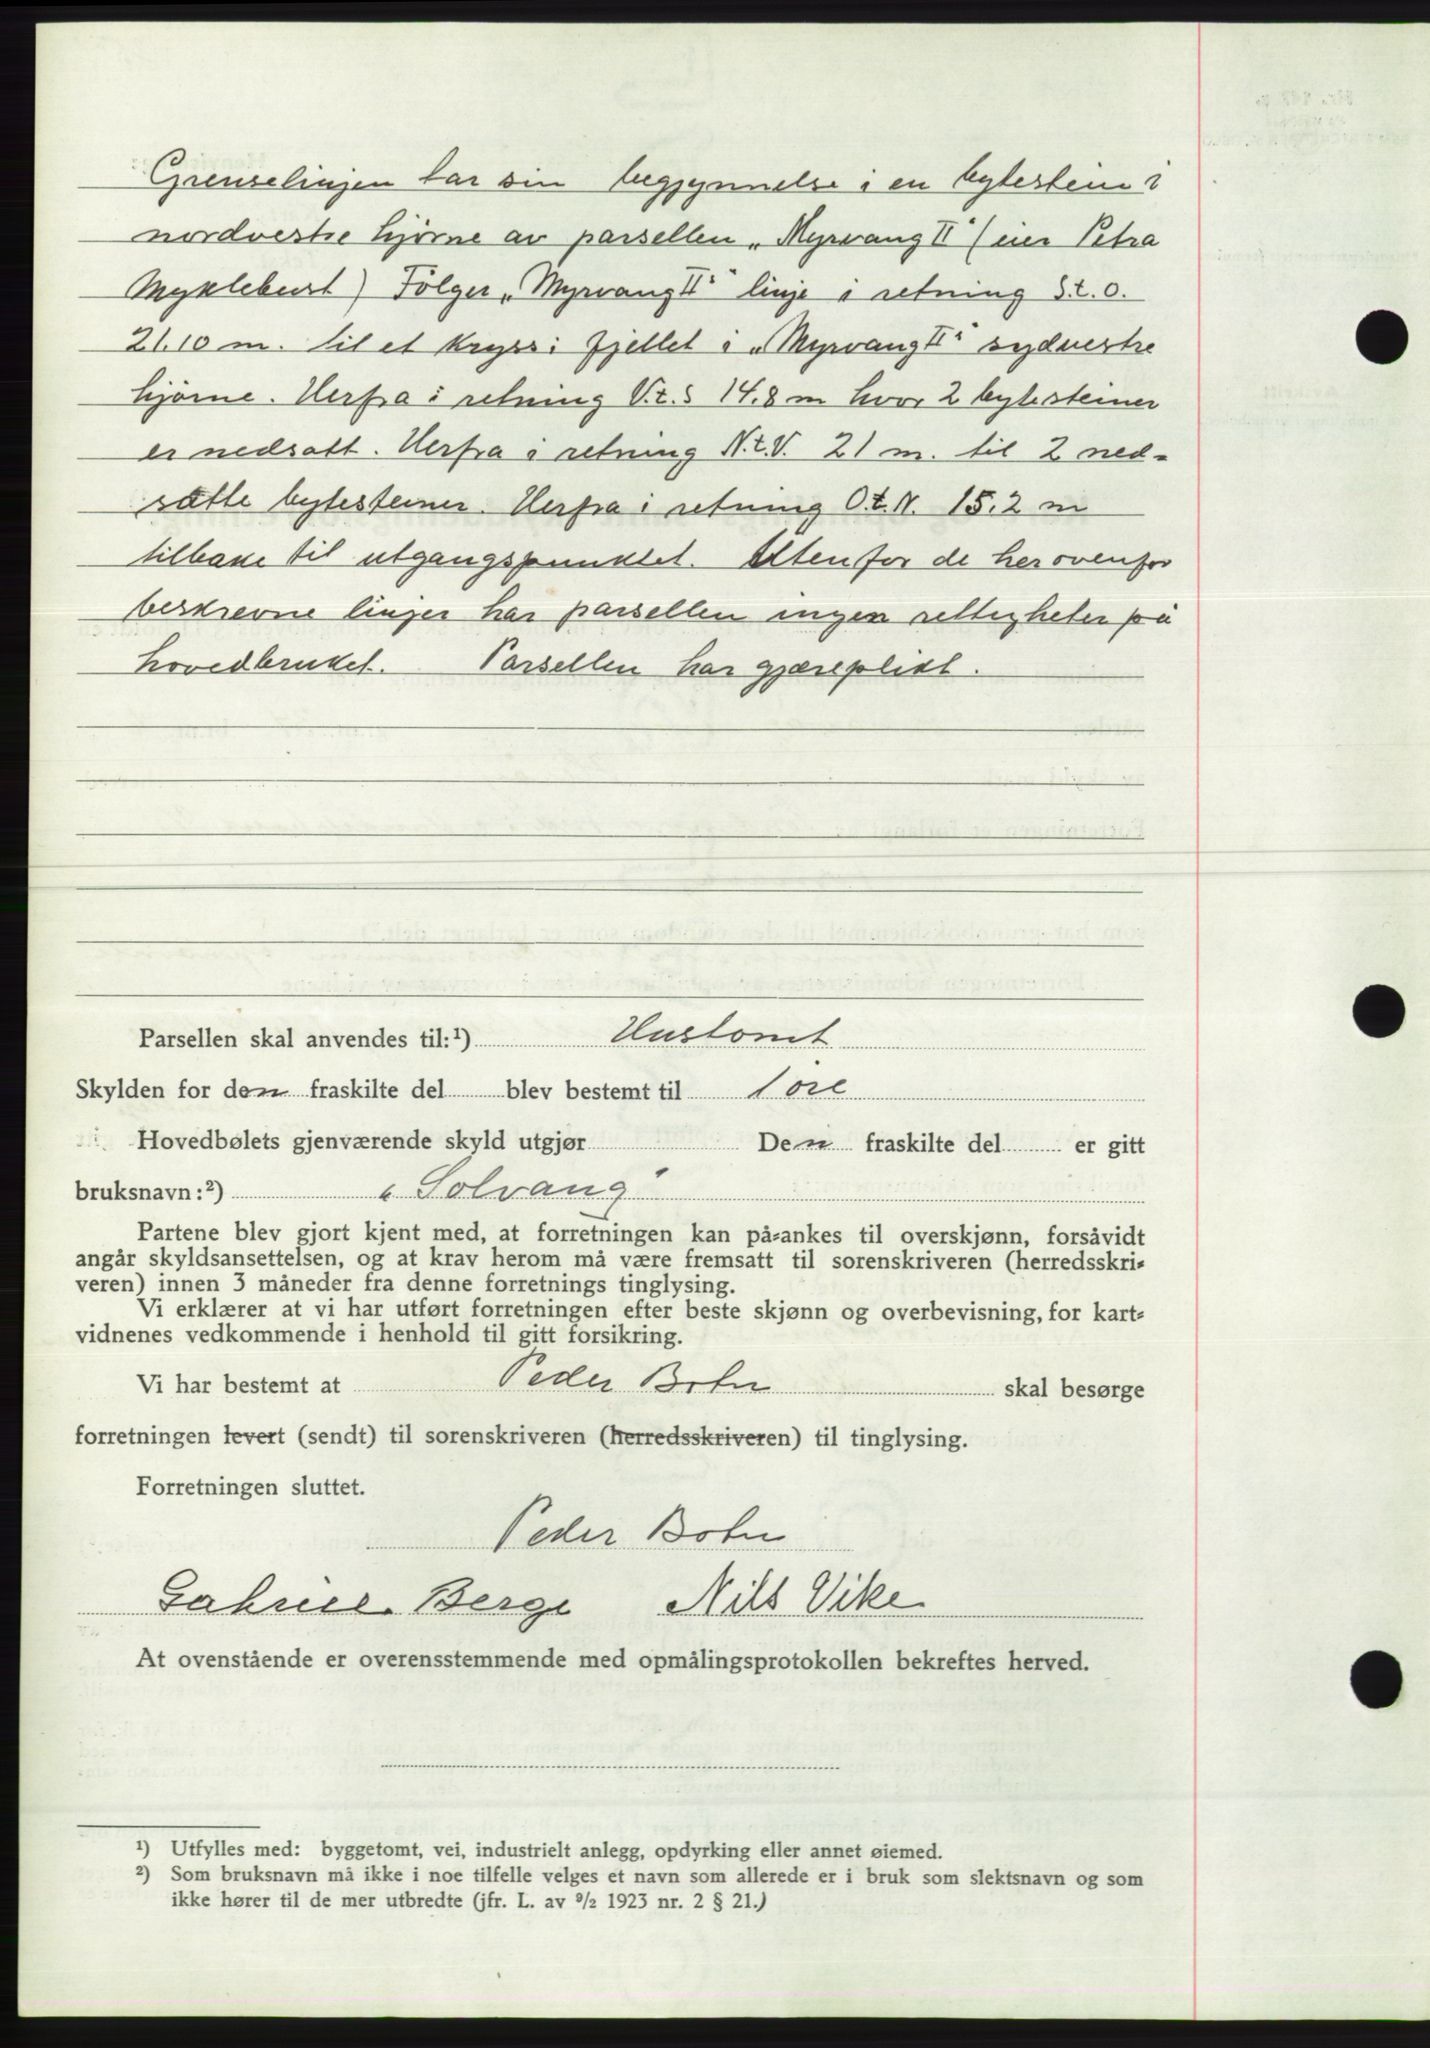 Grenselinjen tar sin begynnelse i en bytestein i
nordvestre hjørne av parsellen „Myrvang II" (eier Petra
Myklebust) Følger „Myrvang II" linje i retning S.t.O.
21.10 m. til et kryss i fjellet i „Myrvang II" sydvestre
hjørne. Herfra i retning V.t.S 14.8 m hvor 2 bytesteiner
er nedsatt. Herfra i retning N.t.V. 21 m. til 2 ned-
satte bytesteiner. Herfra i retning O.t.N. 15.2 m
tilbake til utgangspunktet. Utenfor de her ovenfor
beskrevne linjer har parsellen ingen rettigheter på
hovedbruket. Parsellen har gjæreplikt.
Parsellen skal anvendes til:¹) Hustomt
Skylden for den fraskilte del blev bestemt til 1 øre
Hovedbølets gjenværende skyld utgjør Den fraskilte del er gitt
bruksnavn:²) „Solvang"
Partene blev gjort kjent med, at forretningen kan på-ankes til overskjønn, forsåvidt
angår skyldsansettelsen, og at krav herom må være fremsatt til sorenskriveren (herredsskri-
veren) innen 3 måneder fra denne forretnings tinglysing.
Vi erklærer at vi har utført forretningen efter beste skjønn og overbevisning, for kart-
vidnenes vedkommende i henhold til gitt forsikring.
Vi har bestemt at Peder Botn skal besørge
forretningen levert (sendt) til sorenskriveren (herredsskriveren) til tinglysing.
Forretningen sluttet.
Peder Botn
Gabriel Berge Nils Vike
At ovenstående er overensstemmende med opmålingsprotokollen bekreftes herved.
¹) Utfylles med: byggetomt, vei, industrielt anlegg, opdyrking eller annet øiemed.
²) Som bruksnavn må ikke i noe tilfelle velges et navn som allerede er i bruk som slektsnavn og som
ikke hører til de mer utbredte (jfr. L. av 9/2 1923 nr. 2 § 21.)